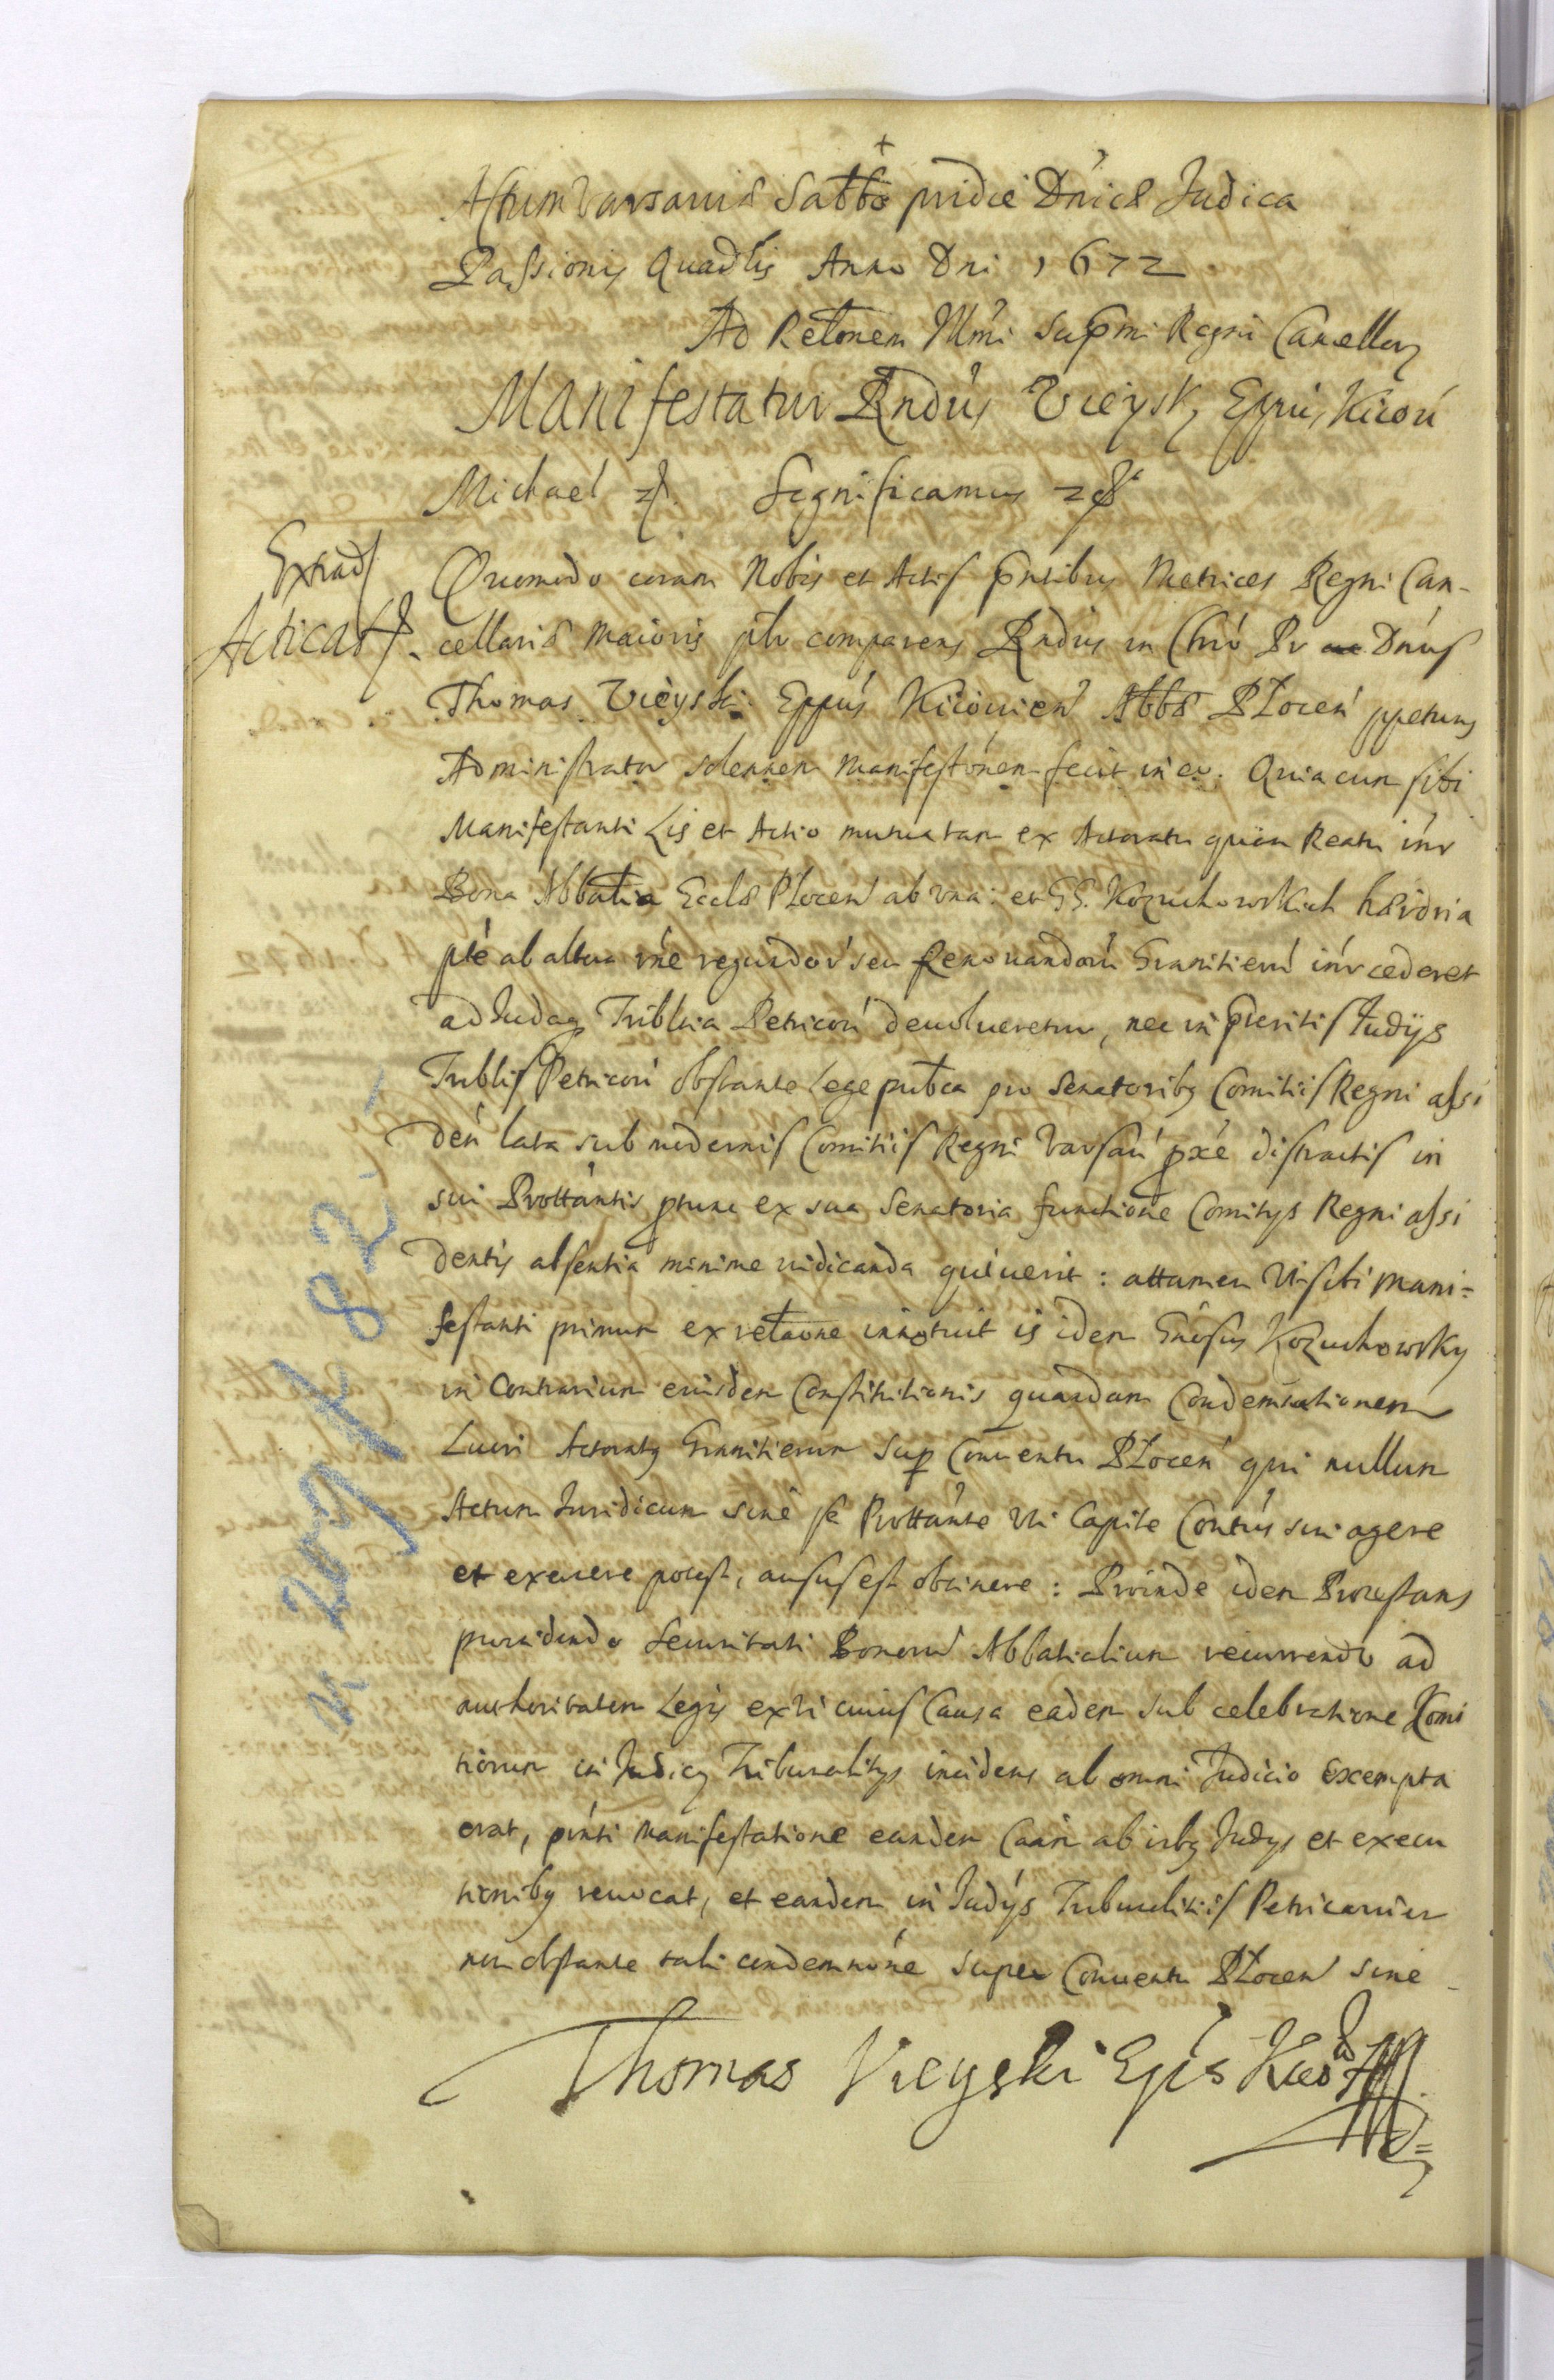 Actum Varsaviæ Sabbo pridie Dnicæ Judica
Passionis Quadlis Anno Dni 1672
Ad Relonem Illmi Supmi Regni Cancellarz
Manifestatur Rndus Vieysky Eppus Kiiov
Michael Significamus
Extrad
Acticat
Quomodo coram Nobis et Actis pntibus Metrices Regni Can-
cellariæ Maioris plr comparens Rndus in Chro Pr Dnus
Thomas Vieyski Eppus Kiiovien Abbs Plocen ppetuus
Administrator solennem manifestonem fecit in eo. Quia cum sibi
Manifestanti Lis et Actio mutua tam ex Actoratu quam Reatu intr
Bona Abbatia Eccle Plocen ab vna: et GG. Kozuchowskich hærdria
pte ab altera rne regundor seu Renouandoru Granitieru intr cederet
ad Judag Triblia Petricou deuolueretur, nec in pteritis Judijs
Triblis Petricou obstante Lege publca pro Senatoribg Comitiis Regni assi
den lata sub modernis Comitiis Regni Varsau pxe distractis in
sui Prottantis ptunc ex sua Senatoria functione Comitijs Regni assi
dentis absentia minime iudicanda quiuerit: attamen Vti sibi mani=
festanti primum ex relaone innotuit is idem Gnosus Kozuchowsky
in Contrarium eiusdem Constitutionis quandam Condemnationem
Lucri Actoratg Granitierum Sup Conuentu Plocen qui nullum
Actum Iuridicum sine se Prottante Vti Capite Contus sui agere
et exercere potest, ausus est obtinere: Proinde idem Protestans
prouidendo Securitati Bonoru Abbatialium recurrendo ad
authoritatem Legis ex vi cuius Causa eadem sub celebratione Komi
tiorum in Judicijs Tribunalitijs incidens ab omni Judicio exempta
erat, pnti Manifestatione eandem Caam ab istg Judijs et execu
tionibg reuocat, et eandem in Judijs Tribunalitiis Petricouien
non obstante tali condemnone super Conuentu Plocen sine
Thomas Vieyski Eps Kiiov